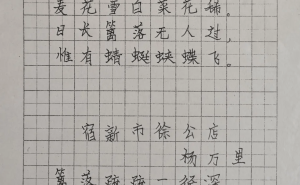 麦花雪白菜花稀。
日长篱落无人过，
惟有蜻蜓蛱蝶飞。
宿新市徐公店
杨万里
篱落疏疏一径深